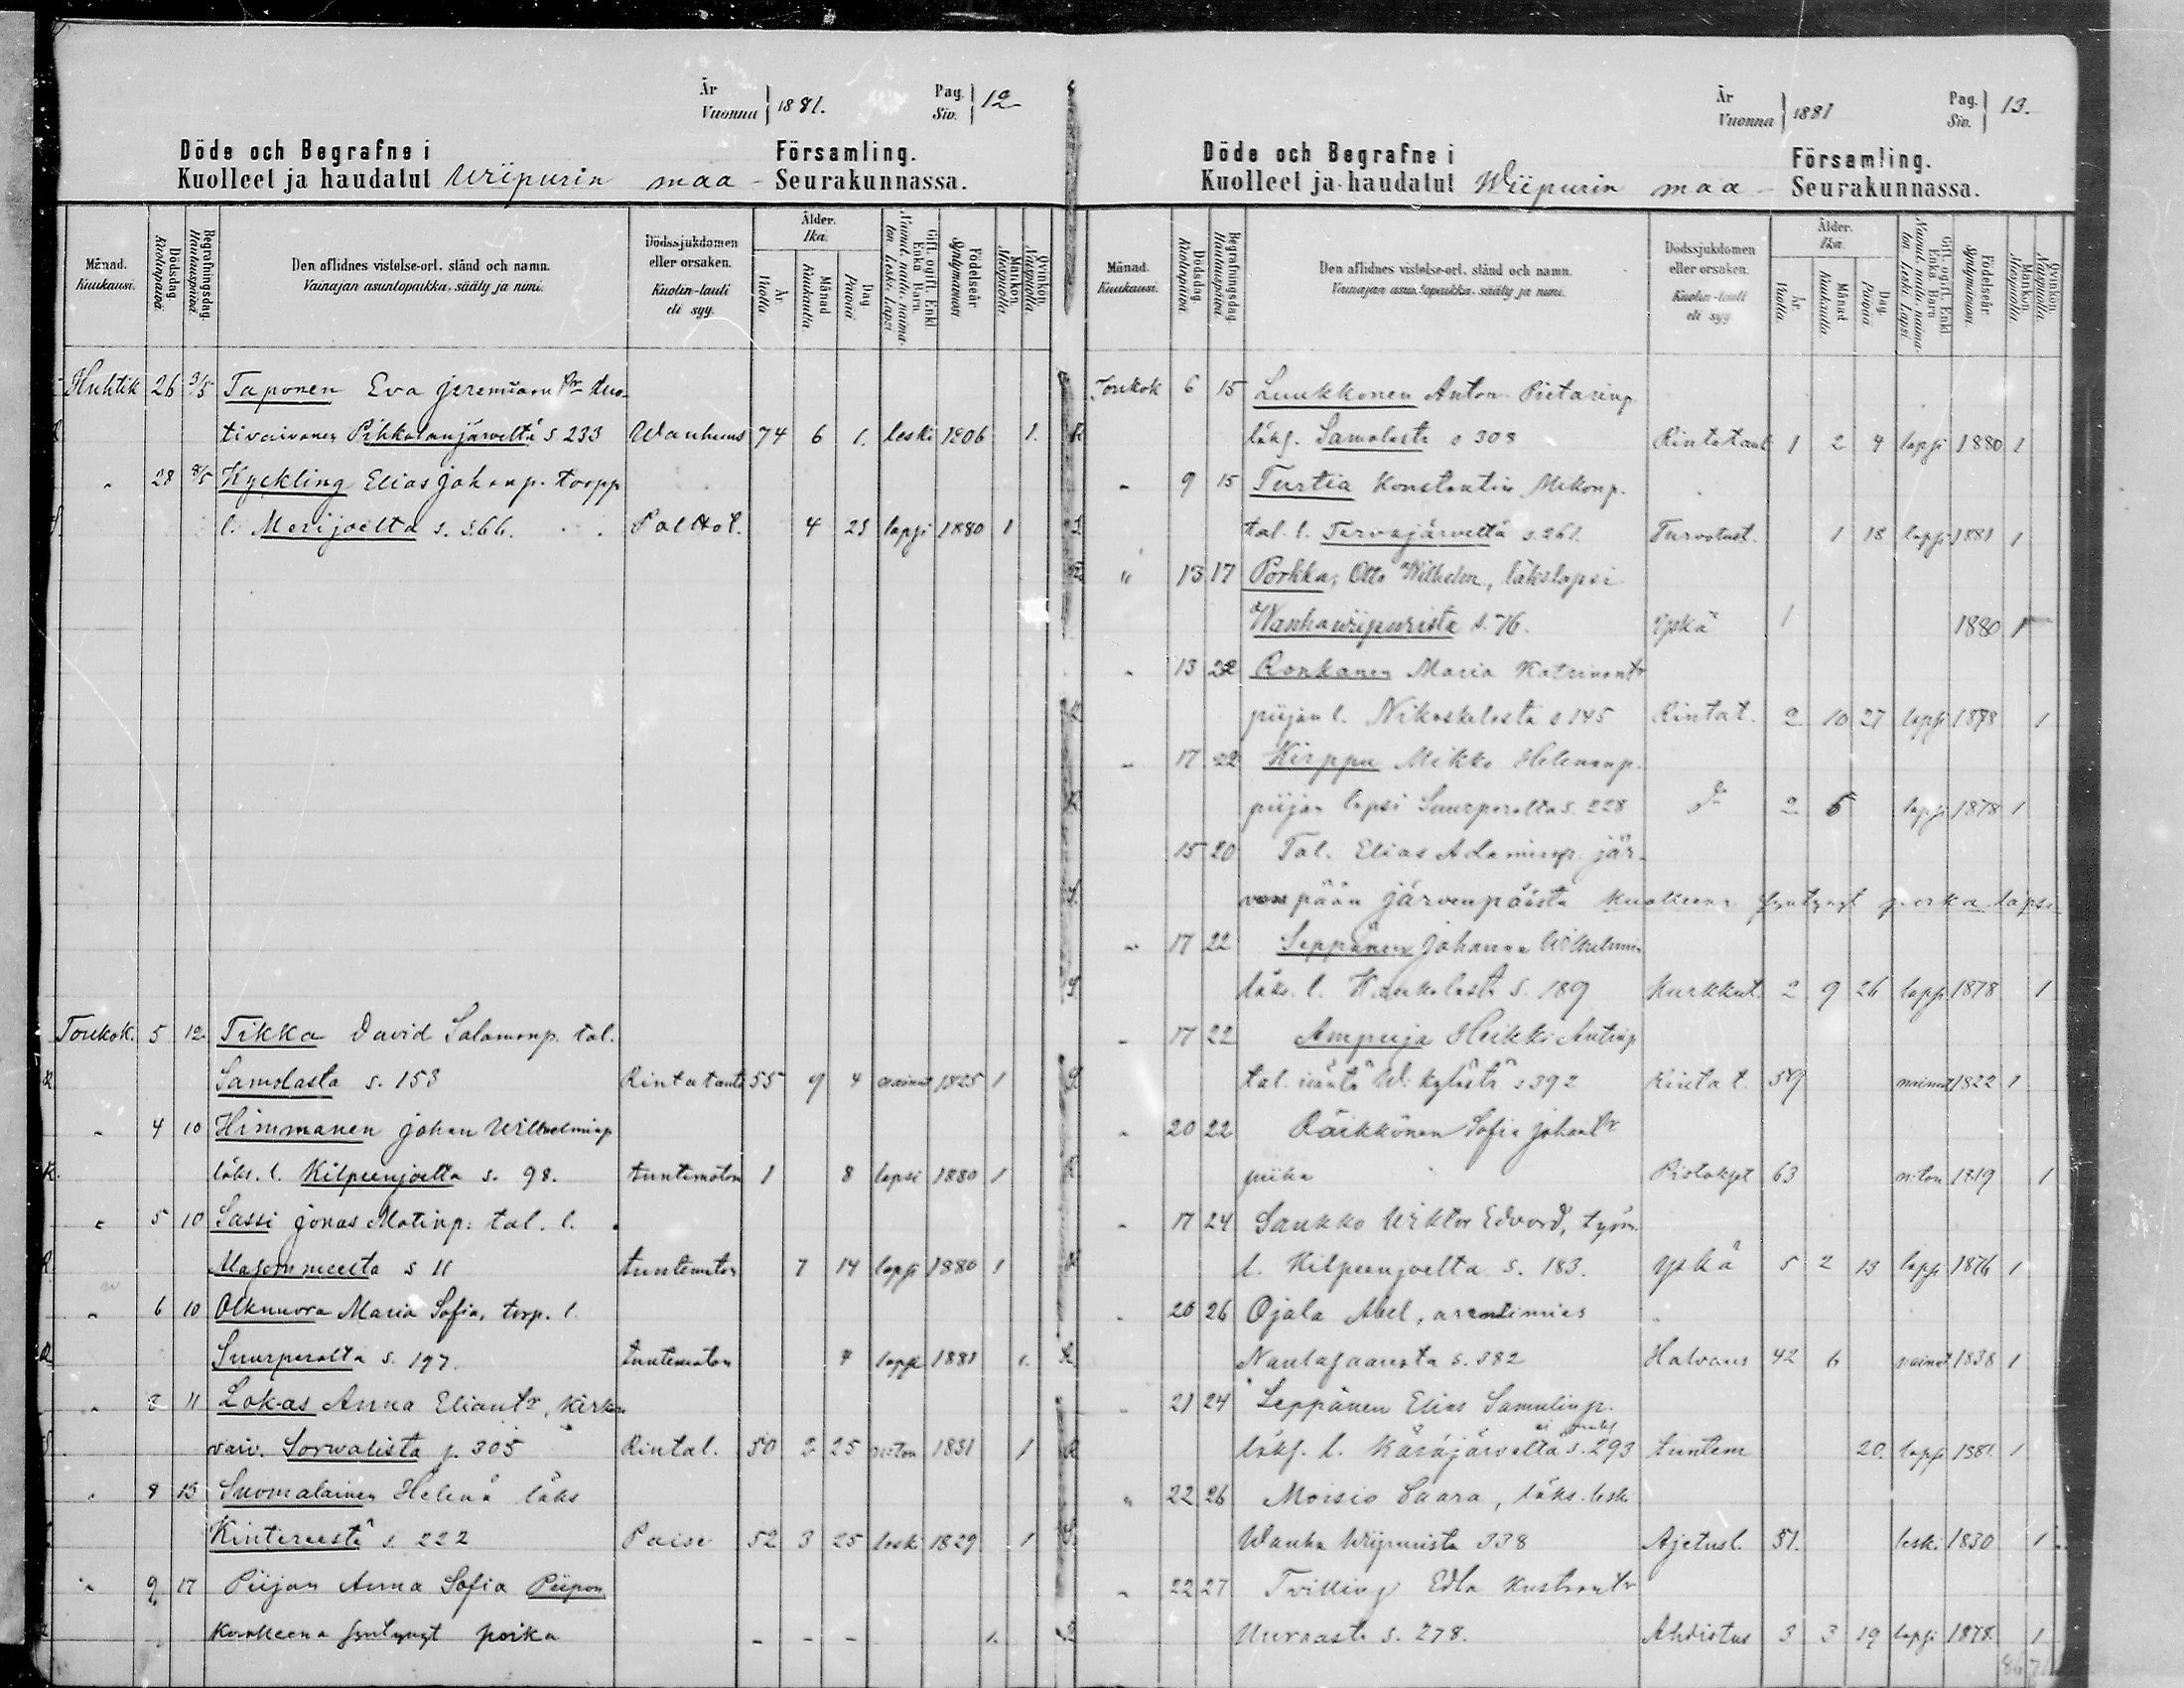 År
Vuonna 1881.
Pag.
Siv. 12
Döde och Begrafne i Församling.
Kuolleet ja haudatut Wiipurin maa - Seurakunnassa.
Månad.
Kuukausi.
Dödsdag.
Kuolinpäivä.
Begrafningsdag.
Hautauspäivä.
Den aflidnes vistelse-ort, stånd och namn.
Vainajan asuntopaikka, sääty ja nimi.
Dödssjukdomen
eller orsaken.
Kuolin-tauti
eli syy.
Ålder.
Ikä.
År.
Vuotta.
Månad
Kuukautta.
Dag.
Päivää.
Gift, ogift, Enkl.
Enka, Barn.
Födelseår
Syntymävuosi
Mankön.
Miespuolia.
Qvinkön.
Vaimopuolia.
Huhtik 26 3/5 Taponen Eva Jeremiaan
tivaivanen Pihkalanjärveltä s 233 Wanhuus 74 6 1. leski 1806 1.
28 8/5 Kyckling Elias Johanp. torpp
l. Merijoelta s. 366. Polttot. 4 21 lapsi 1880 1
Toukok. 5 12 Tikka David Salomonp. tal.
Samolasta s. 153 Rintatauti 55 9 4 nainut 1825 1
" 4 10 Himmanen Johan Wilhelminp
läks. l. Kilpeenjoelta s. 98. tuntematon 1 8 lapsi 1880 1
" 5 10 Sassi Jonas Matinp: tal. l.
s 11 tuntematon 7 14 lapsi 1880 1
" 6 10 Olkinuora Maria Sofia, torp. l.
Suurperolta s. 197. tuntematon lapsi 1881 1.
" 11 Lokas Anna Eliantr, kirkon
vaiv. Sorwalista p. 305 Rintat. 50 2 25 n:ton 1831 1
" 8 15 Suomalainen Helena läks
Kintereestä s. 222 Paise 52 3 25 leski 1829 1
" 9 17 Piijan Anna Sofia Piipon
Kuolleena syntynyt poika - - - 1.
År
Vuonna 1881
Pag.
Siv. 13.
Döde och Begrafne i Församling.
Kuolleet ja haudatut Wiipurin maa - Seurakunnassa.
Månad.
Kuukausi.
Dödsdag.
Kuolinpäivä.
Begrafningsdag.
Hautauspäivä.
Den aflidnes vistelse-ort, stånd och namn.
Vainajan asuntopaikka, sääty ja nimi.
Dödssjukdomen
eller orsaken.
Kuolin-tauti
eli syy.
Ålder.
Ikä.
År.
Vuotta.
Månad
Kuukautta.
Dag.
Päivää.
Gift, ogift, Enkl.
Enka, Barn
Födelseår
Syntymävuosi.
Mankön.
Miespuolia.
Qvinkön.
Vaimopuolia.
Toukok 6 15 Luukkonen Anton Pietarinp
läks. Samolasta s 308 Rintataut 1 2 4 lapsi 1880 1
" 9 15 Turtia Konstantin Mikonp.
tal. l. Tervajärveltä s. 261. Turvotust. 1 18 lapsi 1881 1
" 13 17 Porkka, Otto Wilhelm, läkslapsi
Wanhawiipurista s. 76. Yskä 1 1880 1
" 13 22 Ronkanen Maria Katrinantr
piijan l. Nikoskelasta s 145 Rintat. 2 10 27 lapsi 1878 1
" 17 22 Kirppu Mikko Helenanp.
piijan lapsi Suurperolta s. 228 do 2 5 lapsi 1878 1
15 20 Tal. Elias Adaminp. Jär-
venpään Järvenpäästä kuolleena syntynyt poika lapsi
" 17 22 Seppänen Johanna Wilhelmin
läks. l. s. 189 Kurkkut. 2 9 26 lapsi 1878 1
" 17 22 Ampuja Heikki Antinp
tal. isäntä W: kylästä s 392 Rintat. 59 nainut 1822 1
" 20 22 Räikkönen Sofia Johantr
piika Pistokset 63 n:ton 1819 1
" 17 24 Saukko Wiktor Edvard, työm.
l. Kilpeenjoelta s. 183. Yskä 5 2 13 lapsi 1876 1
" 20 26 Ojala Abel, arentimies
Nuutasaaresta s. 382 Halvaus 42 6 nainut 1838 1
" 21 24 Leppänen Elias Samulinp.
läks. l. Käräjärveltä s. 293 tuntem 20. lapsi 1881. 1
" 22 26 Moisio Saara, läks. leski
Wanha Wiipurista 338 Ajetust. 51. leski 1830 1
" 22 27 Tvilling Edla Kustaantr
Uuraasta s. 278. Ahdistus 3 3 19 lapsi 1878. 1